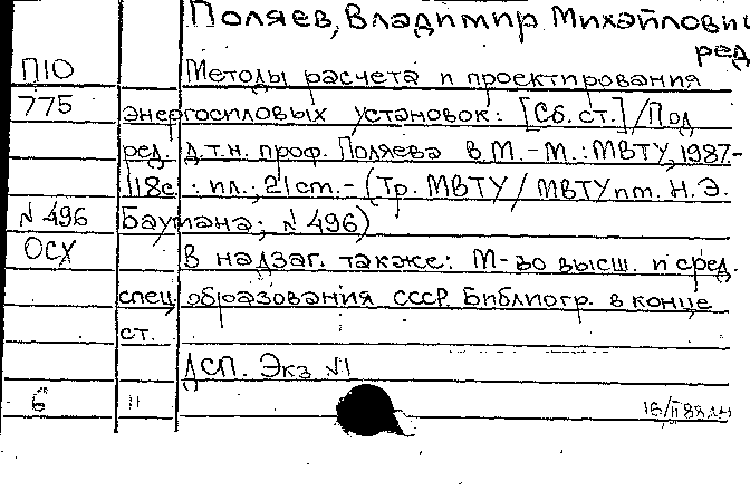 Поляев, Владимир Михайлович
ред
П10 Методы расчета и проектирования
775 энергосиловых установок: [Сб. ст.] / Под
ред. д.т.н. проф. Поляева В.М. - М.: МВТУ, 1987-
118с : ил.; 21 см. - (Тр. МВТУ / МВТУ им. Н.Э.
N 496 Баумана; N 496)
ОСХ В надзаг. также: М-во высш. и сред.
спец. образования СССР. Библиогр. в конце
ст.
ДСП. Экз N1
6 11